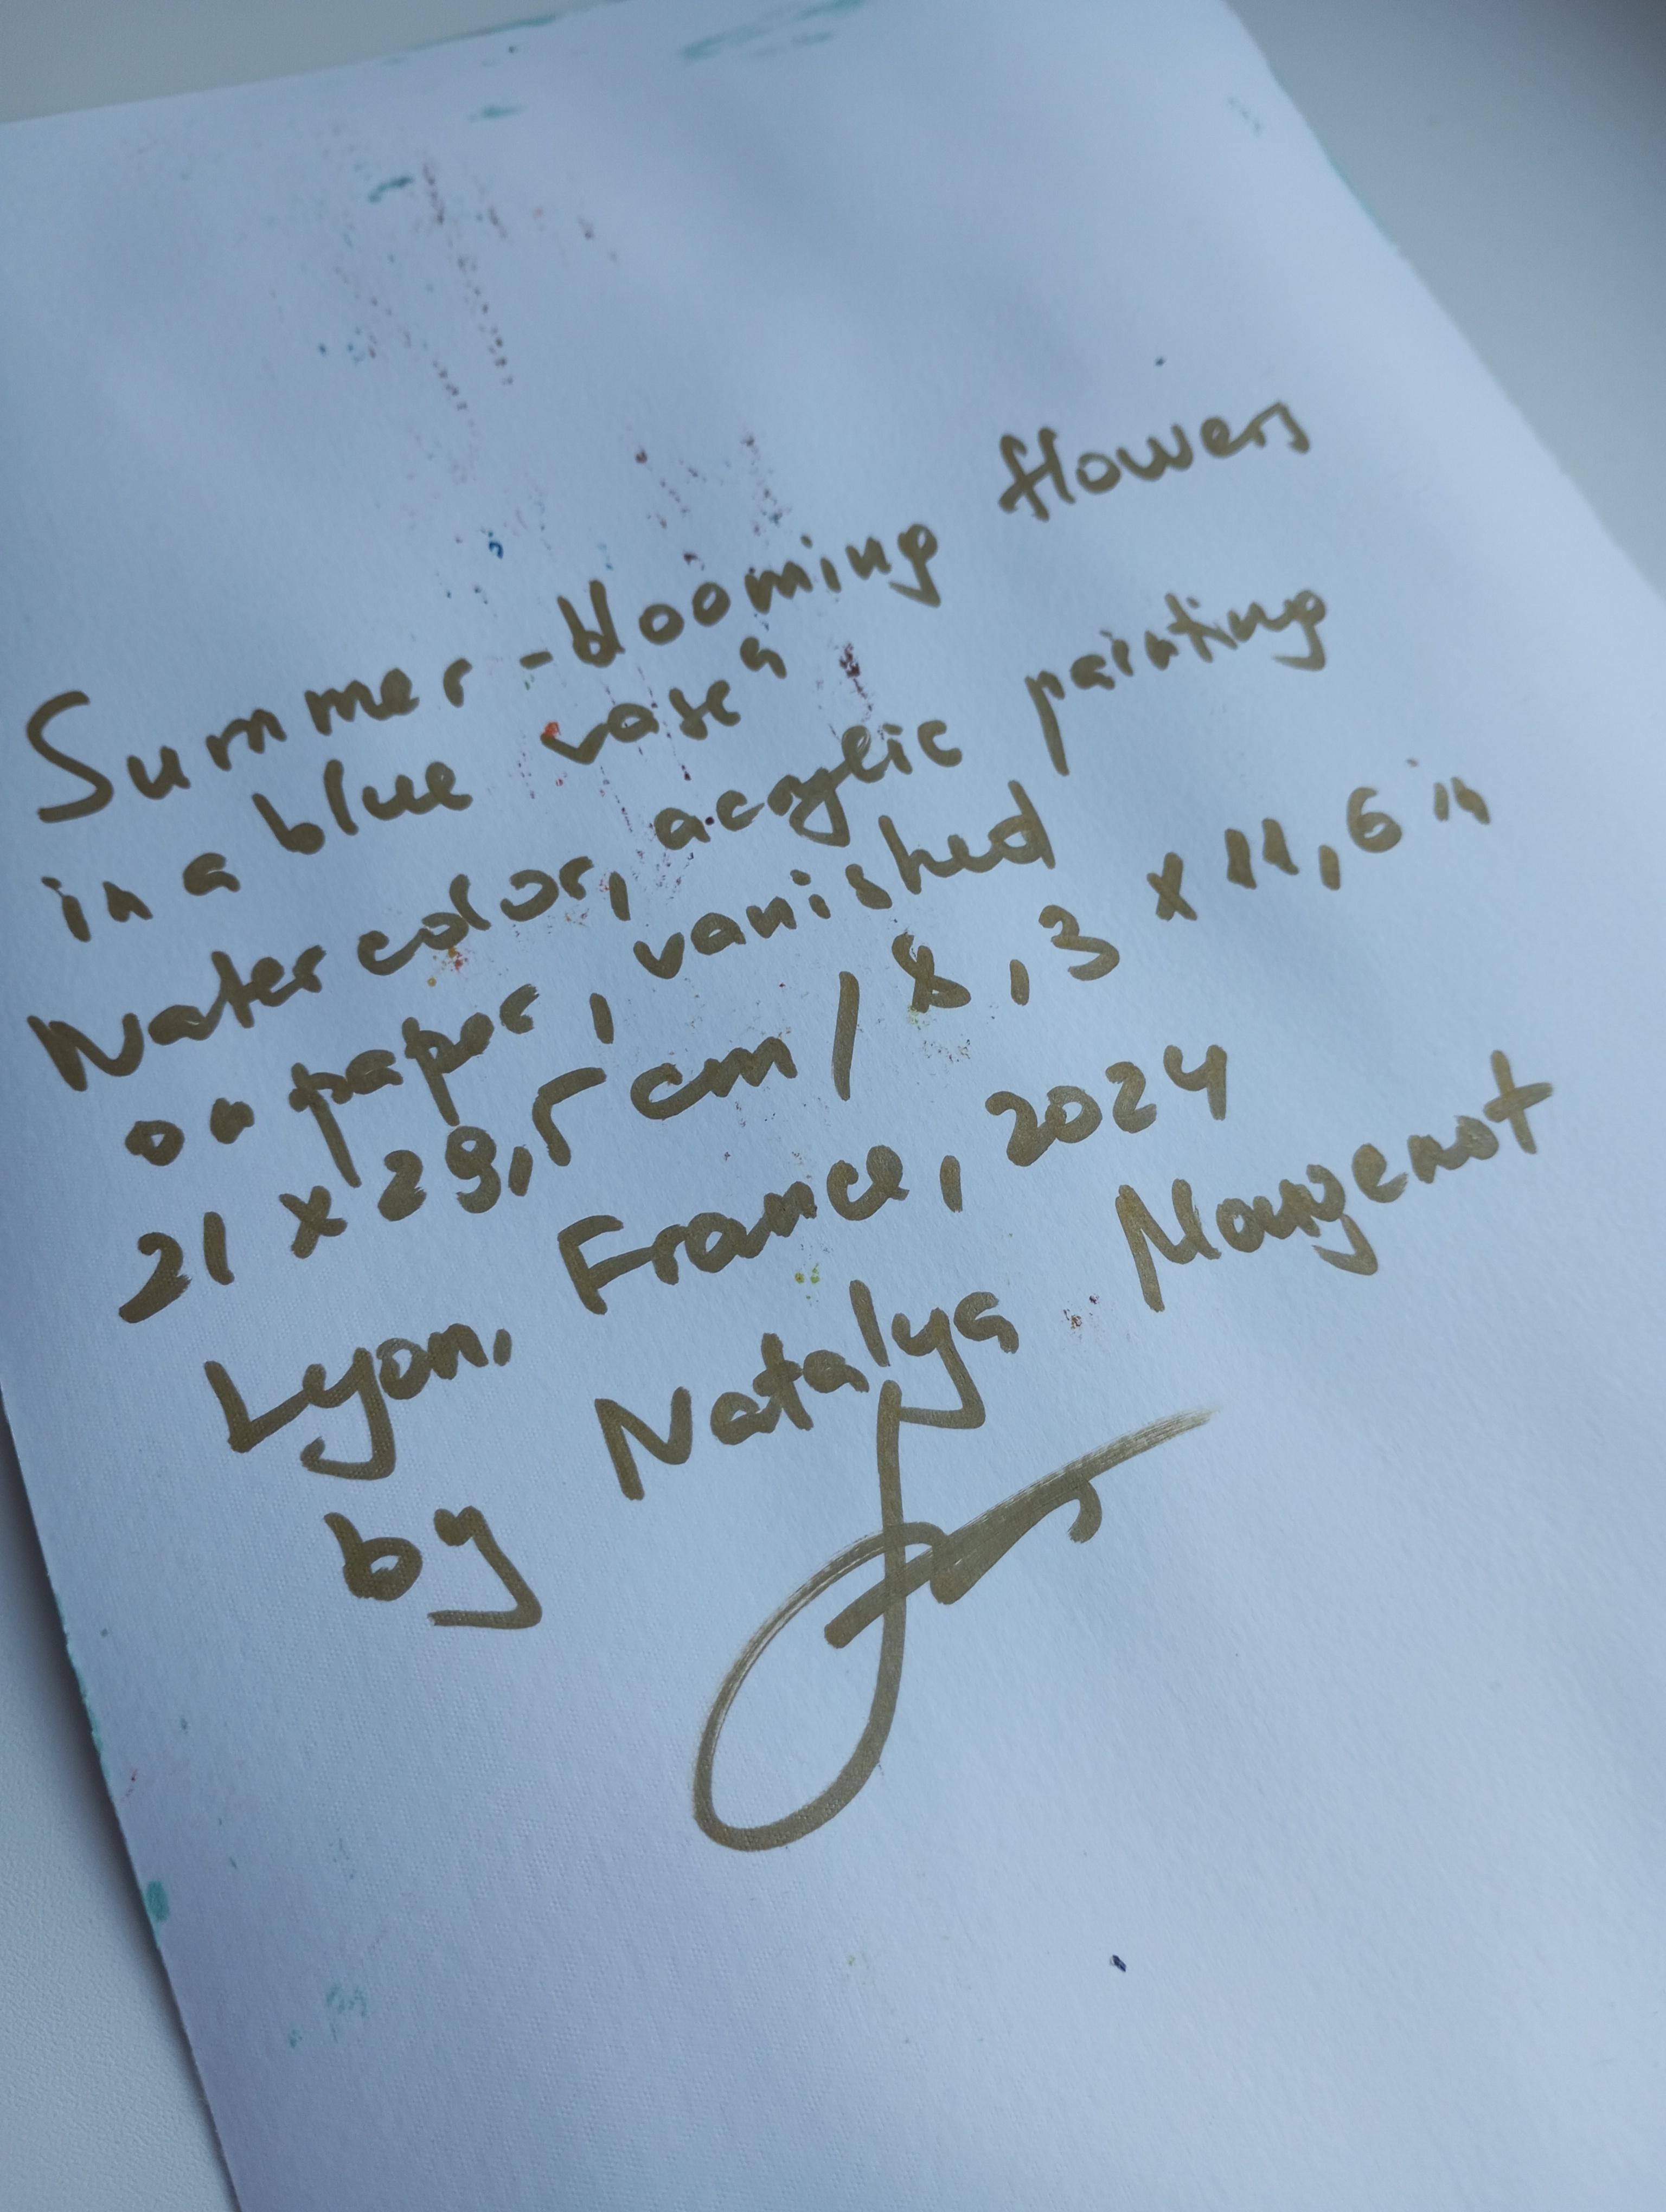 Summer-blooming flowers
in a blue vase"
Watercolor, acrylic painting
on paper, vanished
21 x 29,5 cm / 8,3 x 11,6 in
Lyon, France, 2024
by Natalya Mougenot